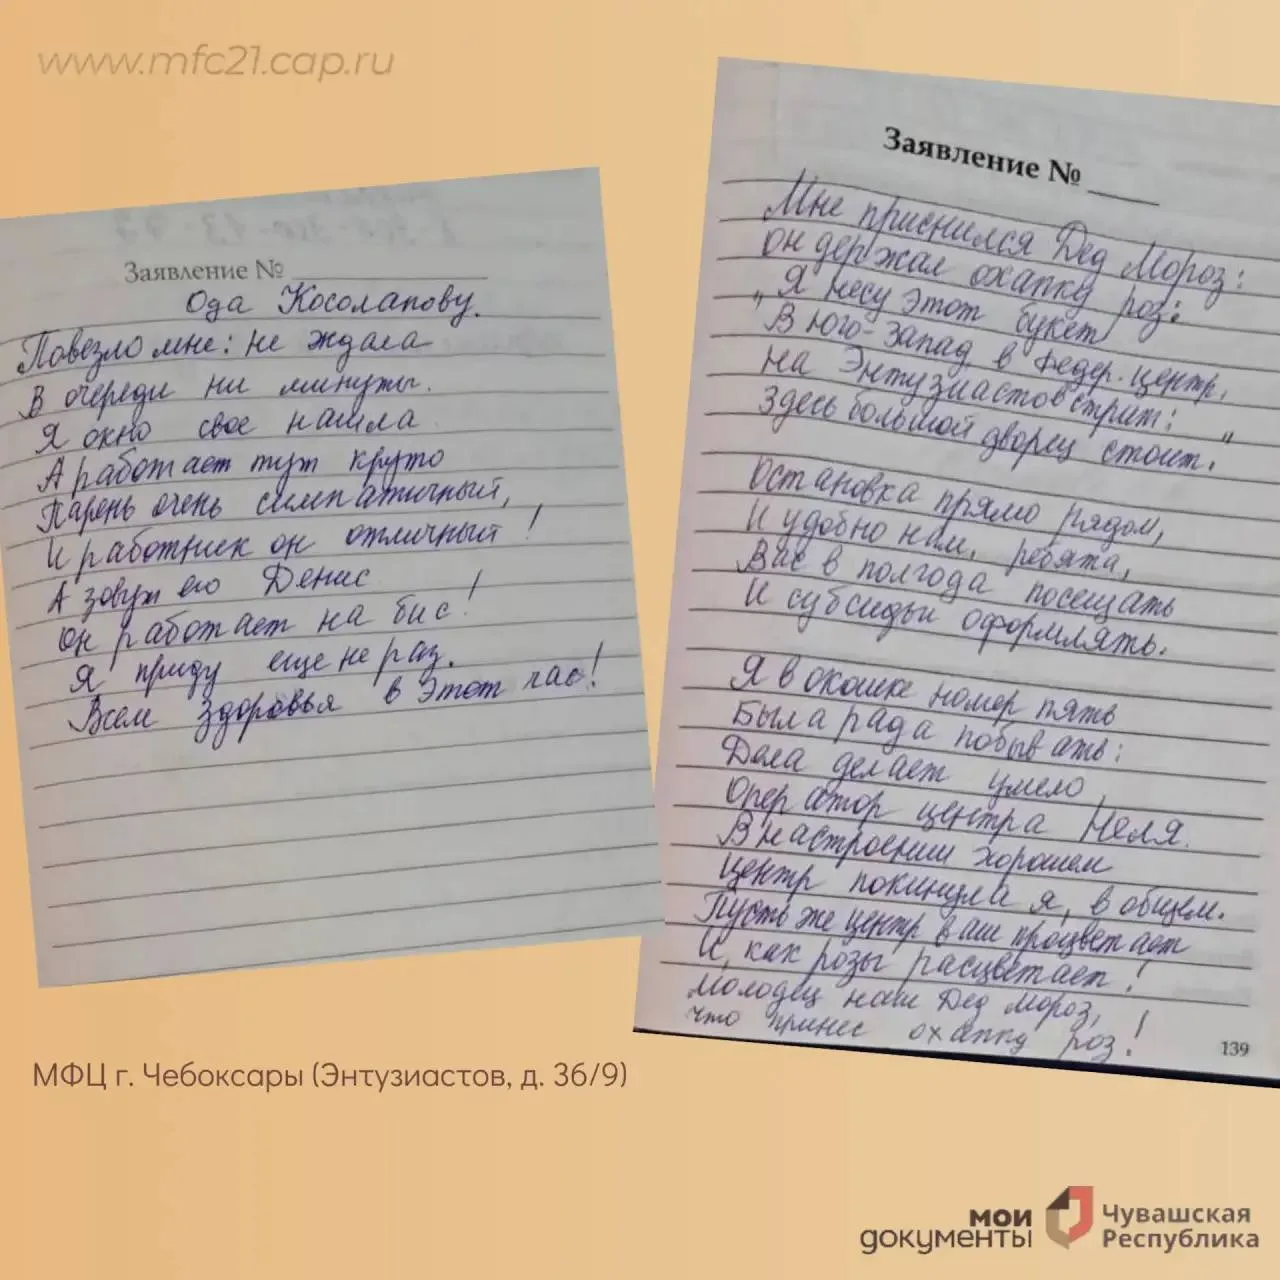 www.mfc21.cap.ru
Заявление №
Ода Косолапову.
Повезло мне: не ждала
В очереди ни минуты.
Я окно свое нашла
А работает тут круто
Парень очень симпатичный,
И работник он отличный!
А зовут его Денис
Он работает на бис!
Я приду еще не раз.
Всем здоровья в этот час!
Заявление №
Мне приснился Дед Мороз:
он держал охапку роз:
"Я несу этот букет
В юго-запад, в Федер. центр,
На Энтузиастов стрит:
Здесь большой дворец стоит."
Остановка прямо рядом,
И удобно нам, ребята,
Вас в полгода посещать
И субсидьи оформлять.
Я в окошке номер пять
Была рада побывать:
Дела делает умело
Оператор центра Неля.
В настроении хорошем
Центр покинула я, в общем.
Пусть же центр ваш процветает
И, как розы расцветает!
Молодец наш Дед Мороз,
что принес охапку роз!
139
МФЦ г. Чебоксары (Энтузиастов, д. 36/9)
мои
документы
Чувашская
Республика